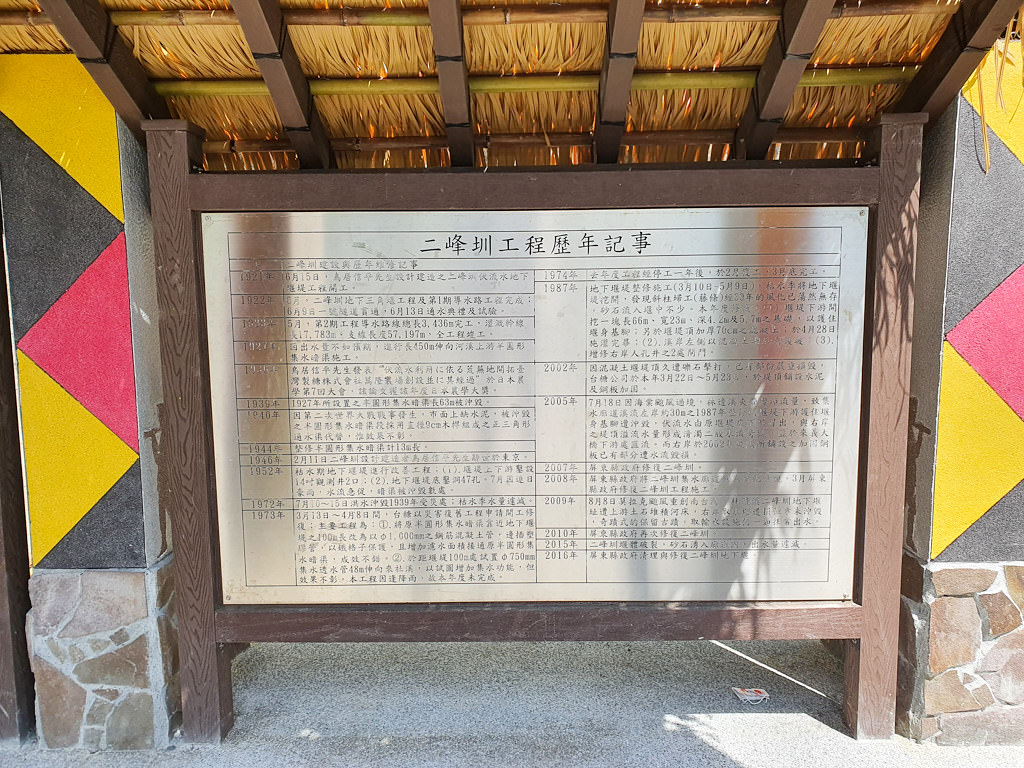 二峰圳工程歷年記事
二峰圳建設與歷年維修記事
1921年 6月15日，鳥居信平先生設計建造之二峰圳伏流水地下
堰堤工程開工。
1922年 6月，二峰圳地下三角堰工程及第1期導水路工程完成；
6月9日一號隧道貫通，6月13日通水典禮及試驗。
5月，第2期工程導水路線總長3,436m完工，灌溉幹線
長17,783m，支線長度57,197m，全工程竣工。
因出水量不如預期，進行長450m伸向河溪上游半圓形
集水暗渠施工。
鳥居信平先生發表"伏流水利用に依る荒蕪地開拓
於日本農
學第7回大會，該論文獲該年度日本農學大獎。
1939年 1927年所設置之半圓形集水暗渠長63m被沖毀。
1940年 因第二次世界大戰戰事發生，市面上缺水泥，被沖毀
之半圓形集水暗渠段採用直徑9cm木桿組成之正三角形
通水渠代替，惟效果不彰。
1944年 整修半圓形集水暗渠計13m長。
1946年 2月11日二峰圳設計建造者鳥居信平先生辭世於東京。
1952年 枯水期地下堰堤進行改善工程：(1).堰堤上下游鑿設
14吋觀測井2口；(2).地下堰堤底鑿洞47孔。7月因連日
豪雨，水流急促，暗渠被沖毀數處。
1972年 7月10～15日洪水沖毀1939年受災處，枯水季水量遽減。
1973年 3月13日～4月8日間，台糖以災害復舊工程申請開工修
復；主要工程為：①.將原半圓形集水暗渠靠近地下堰
堤之100m長改為以φ1,000mm之鋼筋混凝土管，邊牆塑
膠管，以鐵格子保護，且增加濾水面積接通原半圓形集
水暗渠，成效不錯。②.於距堰堤100m處試置φ750mm
集水透水管48m伸向來社溪，以試圖增加集水功能，但
效果不彰。本工程因逢降雨，故本年度未完成。
1974年 去年度工程經停工一年後，於2月復工，3月底完工。
1987年 地下堰堤整修施工(3月10日～5月9日)，枯水季將地下堰
堤挖開，發現斜柱埽工(藤條)經53年的風化已蕩然無存
，砂石流入堰中不少。本年度 堰堤下游開
挖一塊長66m，寬23m，深4.2m及5.7m之基礎，以護住
堰身基腳；另於堰堤頂加厚70cm之混凝土，於4月28日
施灌完畢；(2).溪岸左側以混 (3).
增修右岸人孔井之2處閘門。
2002年 因混凝土堰堤頂久遭礫石擊打，已有部份嚴重損毀，
台糖公司於本年3月22日～5月23日，於堤頂鋪設水泥
及鋼板加固。
2005年 7月18日因海棠颱風過境， 致集
水廊道溪流左岸約30m之1987年 堰堤下游護住堰
身基腳遭沖毀，伏流水由原堰堤 出，與右岸
之堤頂溢流水量形成清濁二股水流 於來義大
橋下游處匯流。而右岸於2002年 所鋪設之加固鋼
板也有部分遭水流毀損。
2007年 屏東縣政府修復二峰圳。
2008年 屏東縣政府將二峰圳集水廊道 3月屏東
縣政府修復二峰圳工程施工。
2009年 8月8日莫拉克颱風重創南台灣 二峰圳地下堰
址遭上游土石堆積河床， 未沖毀
，奇蹟式的保留古蹟，取輸水設施 出水。
2010年 屏東縣政府再次修復二峰圳
2015年 二峰圳堰體破裂，砂石湧入 出水量遽減。
2016年 屏東縣政府清理與修復二峰圳地下堰